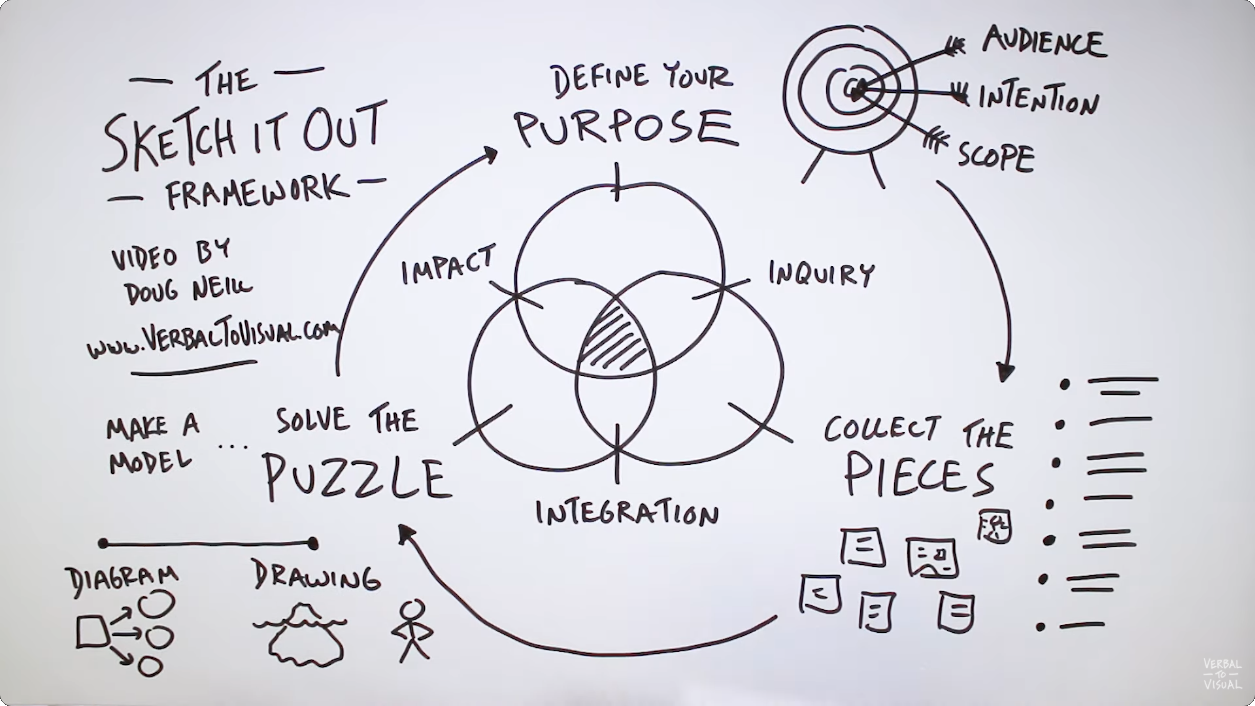 THE
SKETCH IT OUT
FRAMEWORK
VIDEO BY
DOUG NEILL
www.VERBALTOVISUAL.COM
DEFINE YOUR
PURPOSE
AUDIENCE
INTENTION
SCOPE
IMPACT
INQUIRY
INTEGRATION
COLLECT THE
PIECES
SOLVE THE
PUZZLE
MAKE A
MODEL ...
DIAGRAM
DRAWING
VERBAL
TO
VISUAL